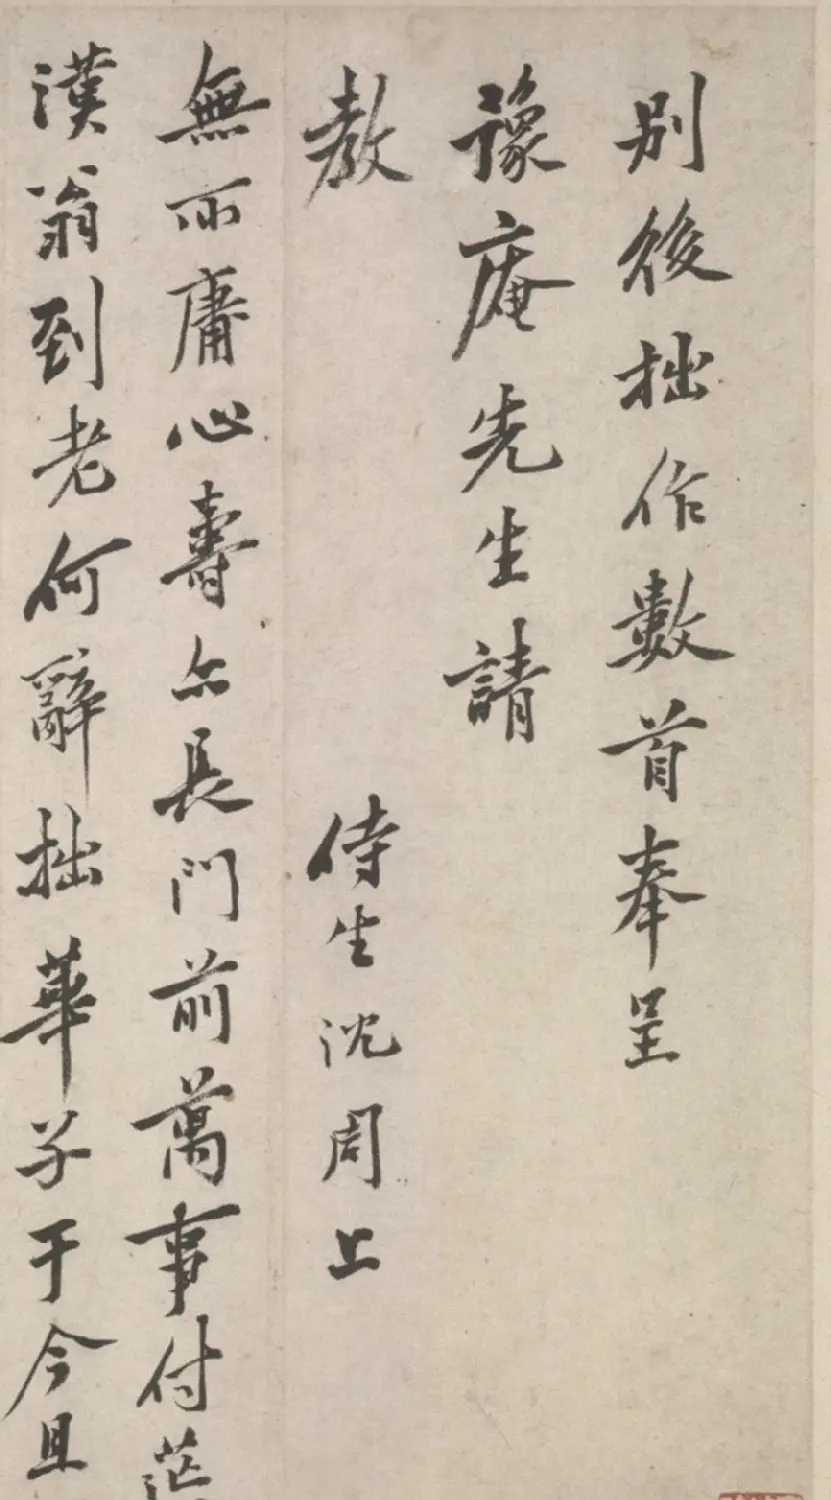 別後拙作數首奉呈
豫庵先生請
教
侍生沈周上
無所庸心壽亦長門前萬事付茫
漢翁到老何辭拙華子于今且